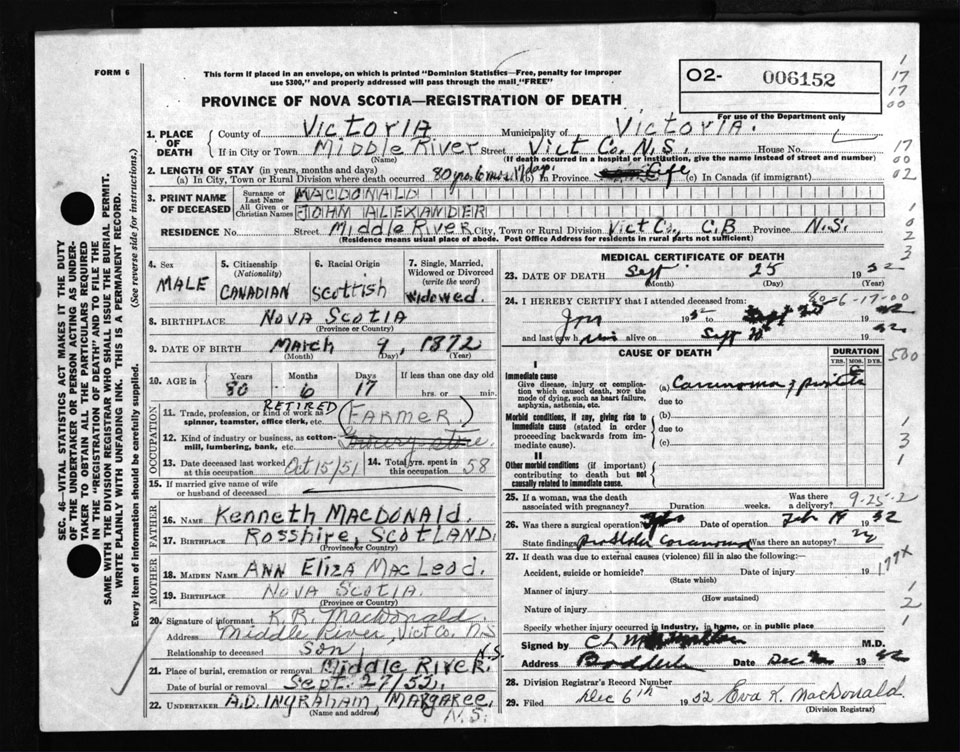 FORM 6
This form if placed in an envelope, on which is printed "Dominion Statistics—Free, penalty for improper
use $300," and properly addressed will pass through the mail "FREE"
O2- 006152
For use of the Department only
PROVINCE OF NOVA SCOTIA—REGISTRATION OF DEATH
1. PLACE OF DEATH
County of Victoria Municipality of Victoria.
If in City or Town Middle River Street Vict Co. N.S. House No.
(Name) (If death occurred in a hospital or institution, give the name instead of street and number)
2. LENGTH OF STAY (in years, months and days)
(a) In City, Town or Rural Division where death occurred 80 yrs. 6 mos. 17 days. (b) In Province Life (c) In Canada (if immigrant)
3. PRINT NAME OF DECEASED
Surname or Last Name MACDONALD
All Given or Christian Names JOHN ALEXANDER
RESIDENCE No. Street Middle River City, Town or Rural Division Vict Co., C.B Province N.S.
(Residence means usual place of abode. Post Office Address for residents in rural parts not sufficient)
4. Sex MALE
5. Citizenship (Nationality) CANADIAN
6. Racial Origin Scottish
7. Single, Married, Widowed or Divorced (write the word) Widowed.
8. BIRTHPLACE Nova Scotia
(Province or Country)
9. DATE OF BIRTH March 9, 1872
(Month) (Day) (Year)
10. AGE in Years 80 Months 6 Days 17 If less than one day old hrs. or min.
OCCUPATION
11. Trade, profession, or kind of work as spinner, teamster, office clerk, etc. RETIRED (FARMER)
12. Kind of industry or business, as cotton-mill, lumbering, bank, etc.
13. Date deceased last worked at this occupation Oct 15/51
14. Total yrs. spent in this occupation 58
15. If married give name of wife or husband of deceased
FATHER
16. NAME Kenneth MacDonald.
17. BIRTHPLACE Rosshire, Scotland.
(Province or Country)
MOTHER
18. MAIDEN NAME Ann Eliza MacLeod.
19. BIRTHPLACE Nova Scotia.
(Province or Country)
20. Signature of informant K. R. MacDonald
Address Middle River, Vict Co. N.S
Relationship to deceased son
21. Place of burial, cremation or removal Middle River. N.S.
Date of burial or removal Sept. 27/52.
22. UNDERTAKER A.D. Ingraham Margaree, N.S.
(Name and address)
MEDICAL CERTIFICATE OF DEATH
23. DATE OF DEATH Sept 25 1952
(Month) (Day) (Year)
80-6-17-00
24. I HEREBY CERTIFY that I attended deceased from:
1952 to 19
and last saw him alive on Sept 19
CAUSE OF DEATH
DURATION
YRS. MOS. DYS.
I
Immediate cause
Give disease, injury or complication which caused death, not the mode of dying, such as heart failure, asphyxia, asthenia, etc.
(a) Carcinoma of
due to
Morbid conditions, if any, giving rise to immediate cause (stated in order proceeding backwards from immediate cause).
(b)
due to
(c)
II
Other morbid conditions (if important) contributing to death but not causally related to immediate cause.
25. If a woman, was the death associated with pregnancy? Duration weeks. Was there a delivery?
9-25-2
26. Was there a surgical operation? Yes Date of operation Feb 19 1952
State findings Was there an autopsy?
27. If death was due to external causes (violence) fill in also the following:—
Accident, suicide or homicide? Date of injury 19
(State which)
177X
Manner of injury
(How sustained)
Nature of injury
Specify whether injury occurred in industry, in home, or in public place
Signed by M.D.
Address Date Dec 19
28. Division Registrar's Record Number
29. Filed Dec 6th 1952 Eva K. MacDonald.
(Division Registrar)
SEC. 46—VITAL STATISTICS ACT MAKES IT THE DUTY
OF THE UNDERTAKER OR PERSON ACTING AS UNDERTAKER
TO OBTAIN ALL THE PARTICULARS REQUIRED
IN THE "REGISTRATION OF DEATH" AND TO FILE THE
SAME WITH THE DIVISION REGISTRAR WHO SHALL ISSUE THE BURIAL PERMIT.
WRITE PLAINLY WITH UNFADING INK. THIS IS A PERMANENT RECORD.
Every item of information should be carefully supplied. (See reverse side for instructions.)
1
17
17
00
17
00
02
1
0
2
3
500
1
3
1
1
2
1